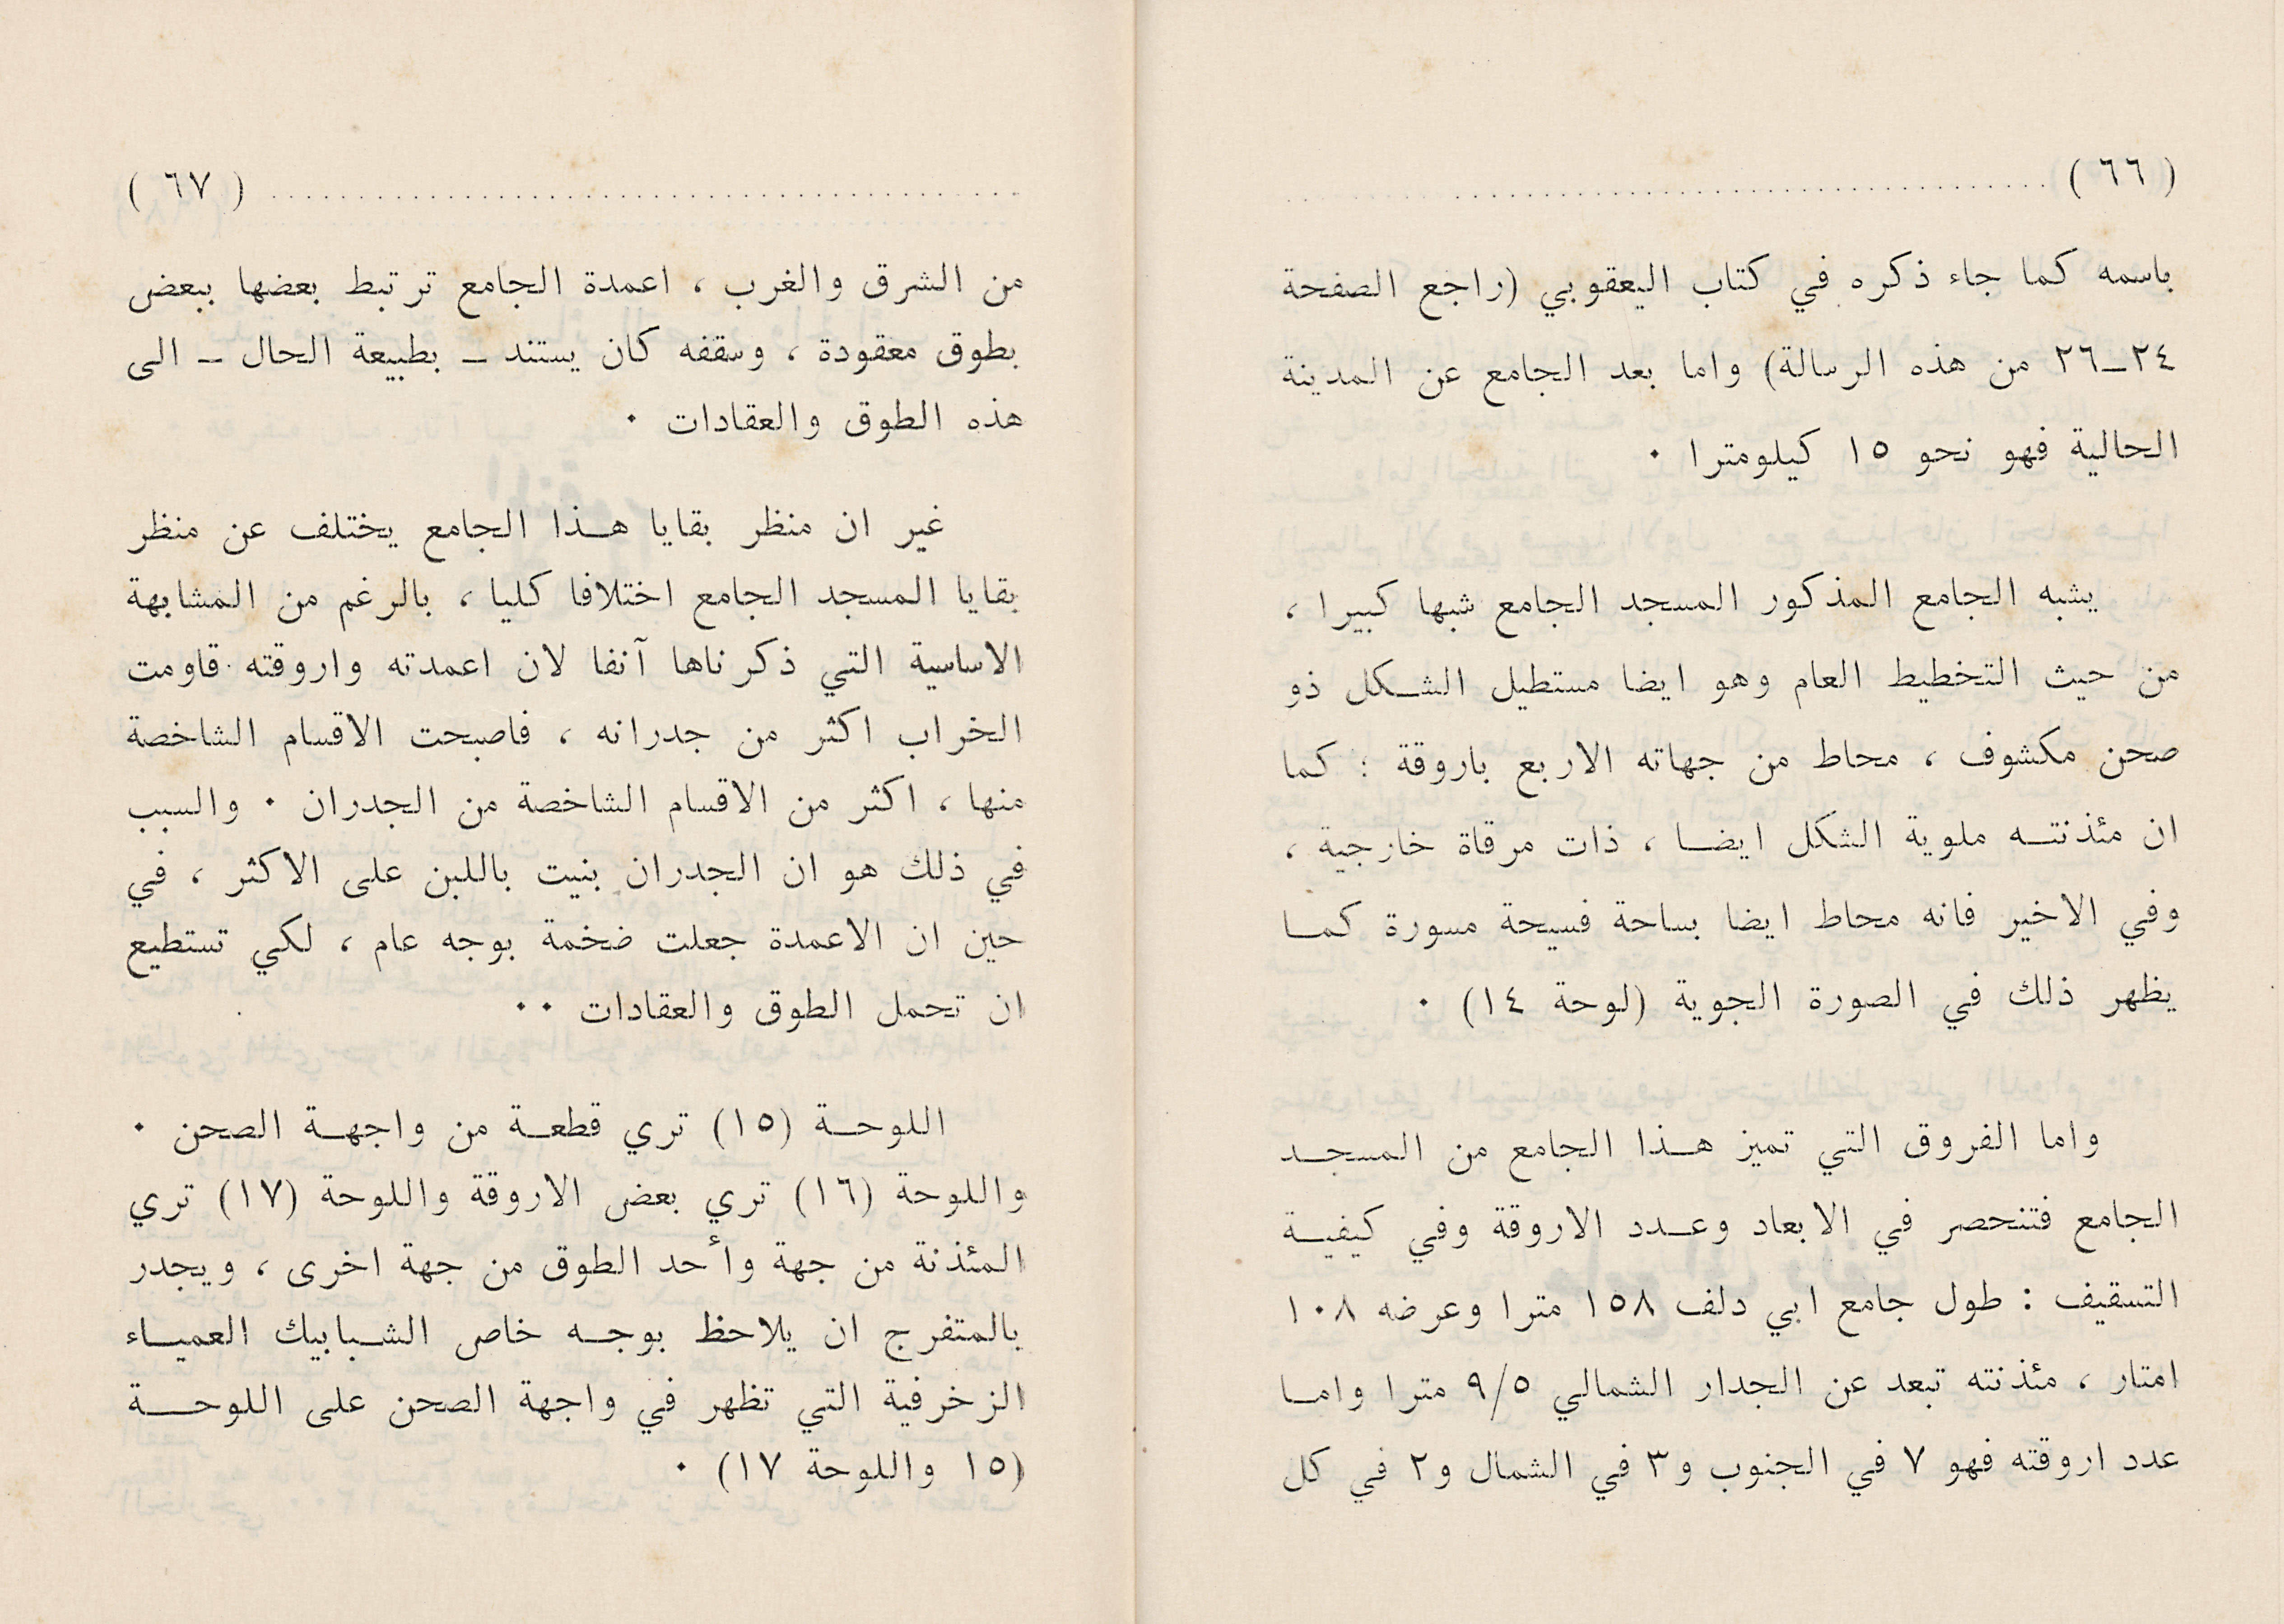 ( ٦٦ )
باسمه كما جاء ذكره في كتاب اليعقوبي (راجع الصفحة
٢٤ــ٢٦ من هذه الرسالة) واما بعد الجامع عن المدينة
الحالية فهو نحو ١٥ كيلومترا ٠
يشبه الجامع المذكور المسجد الجامع شبها كبيرا ،
من حيث التخطيط العام وهو ايضا مستطيل الشــكل ذو
صحن مكشوف ، محاط من جهاته الاربع باروقة : كما
ان مئذنتــه ملوية الشكل ايضــا ، ذات مرقاة خارجية ،
وفي الاخير فانه محاط ايضا بساحة فسيحة مسورة كمــا
يظهر ذلك في الصورة الجوية (لوحة ١٤) ٠
واما الفروق التي تميز هــذا الجامع من المسجــد
الجامع فتنحصر في الابعاد وعــدد الاروقة وفي كيفيــة
التسقيف : طول جامع ابي دلف ١٥٨ مترا وعرضه ١٠٨
امتار ، مئذنته تبعد عن الجدار الشمالي ٩/٥ مترا وامــا
عدد اروقته فهو ٧ في الجنوب و٣ في الشمال و٢ في كل
( ٦٧ )
من الشرق والغرب ، اعمدة الجامع ترتبط بعضها ببعض
بطوق معقودة ، وسقفه كان يستند ــ بطبيعة الحال ــ الى
هذه الطوق والعقادات ٠
غير ان منظر بقايا هــذا الجامع يختلف عن منظر
بقايا المسجد الجامع اختلافا كليا ، بالرغم من المشابهة
الاساسية التي ذكرناها آنفا لان اعمدته واروقته قاومت
الخراب اكثر من جدرانه ، فاصبحت الاقسام الشاخصة
منها ، اكثر من الاقسام الشاخصة من الجدران ٠ والسبب
في ذلك هو ان الجدران بنيت باللبن على الاكثر ، في
حين ان الاعمدة جعلت ضخمة بوجه عام ، لكي تستطيع
ان تحمل الطوق والعقادات ٠٠
اللوحــة (١٥) تري قطعــة من واجهــة الصحن ٠
واللوحة (١٦) تري بعض الاروقة واللوحة (١٧) تري
المئذنة من جهة وأحد الطوق من جهة اخرى ، ويجدر
بالمتفرج ان يلاحظ بوجــه خاص الشــبابيك العميــاء
الزخرفية التي تظهر في واجهة الصحن على اللوحــــة
(١٥ واللوحة ١٧) ٠